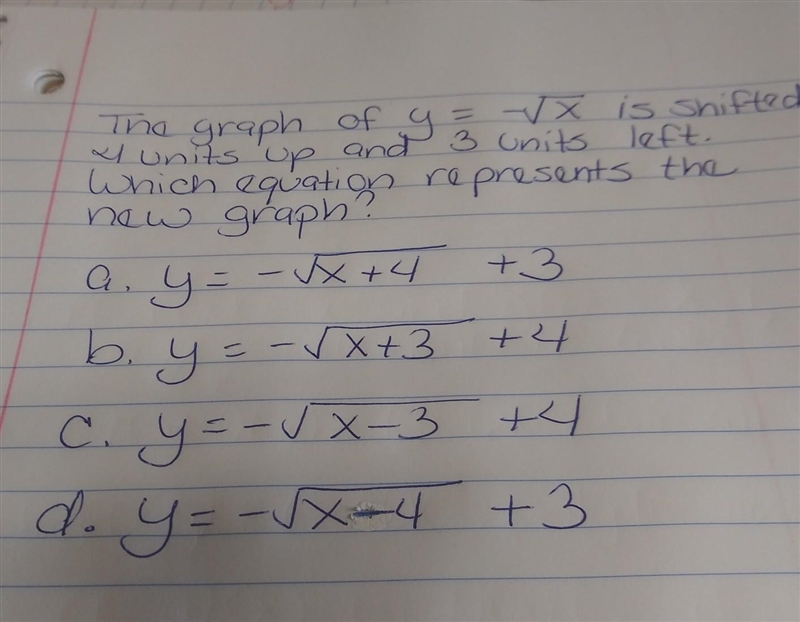 The graph of y = -√x is shifted
4 units up and 3 units left.
Which equation represents the
new graph?
a. y = -√x+4 +3
b. y = -√x+3 +4
c. y = -√x-3 +4
d. y = -√x-4 +3